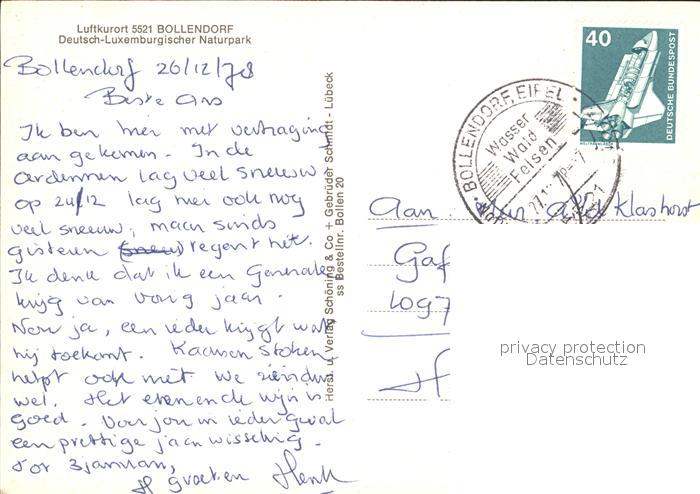 Luftkurort 5521 BOLLENDORF
Deutsch-Luxemburgischer Naturpark
Bollendorf 26/12/78
Beste Ans
Ik ben hier met vertraging
aan gekomen. In de
ardennen lag veel sneeuw
op 24/12 lag hier ook nog
veel sneeuw, maar sinds
gisteren regent het.
Ik denk dat ik een Generale
krijg van vorig jaar.
Nou ja, een ieder krijgt wat
hij toekomt. Kaarsen stoken
helpt ook niet we zien
wel. Het eten en de wijn is
goed. Voor jou in ieder geval
een prettige jaarwisseling.
Tot 3 januari,
groeten Henk
Herst. u. Verlag Schöning & Co + Gebrüder Schmidt - Lübeck
ss Bestellnr. Bollen 20
40
DEUTSCHE BUNDESPOST
BOLLENDORF, EIFEL
Wasser
Wald
Felsen
Aan Klashorst
Gaf
1097
H
privacy protection
Datenschutz